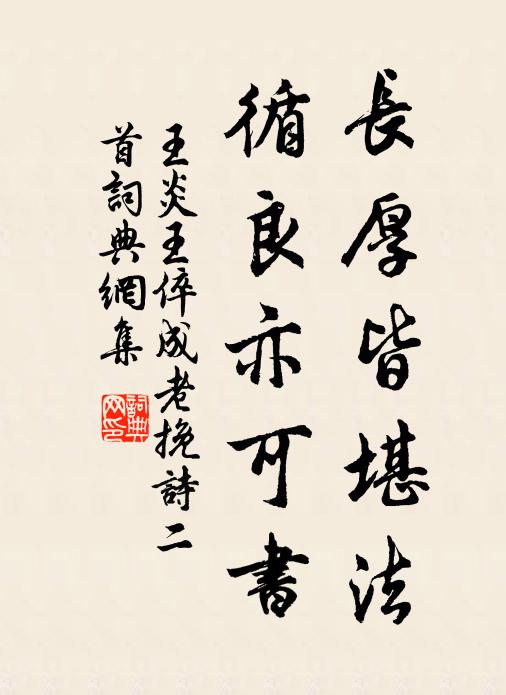 長厚皆堪法
循良亦可書
王炎王倅成老挽詩二
首詞典網集
詞典
网印